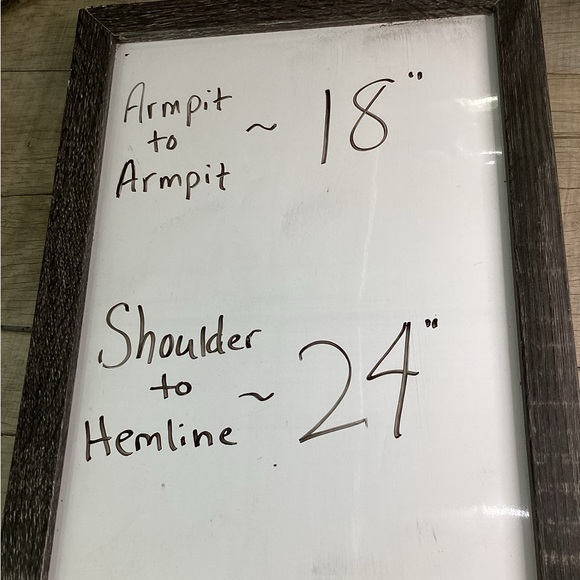 Armpit
to ~ 18"
Armpit
Shoulder
to ~ 24"
Hemline